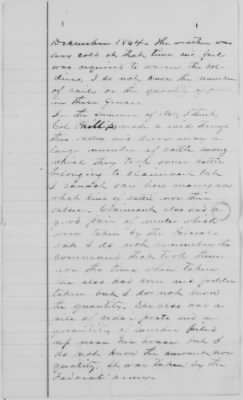 December 1864. The weather was
very cold at that time and fuel
was required to warm the sol-
diers, I do not know the number
of rails or the quantity of
in these fences.
In the summer of 1864 I think
Col Phillips made a raid through
this valley and drove away a
large number of cattle among
which they took some cattle
belonging to claimant but
I cannot say how many nor
what kind of cattle nor their
value. Claimant also had a
good pair of mules which
were taken by the Federals
but I do not remember the
command that took them
nor the time when taken
He also had corn and fodder
taken but I do not know
the quantity. He also had a
pile of cedar posts and a
quantity of lumber piled
up near his house but I
do not know the amount nor
quality. It was taken by the
Federal army.